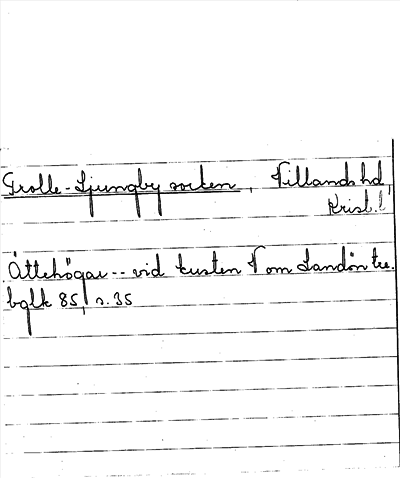 Trolle-Ljungby socken, Villands hd,
Krist. l
Ättehögar -- vid kusten V om Landön
bglk 85, s. 35